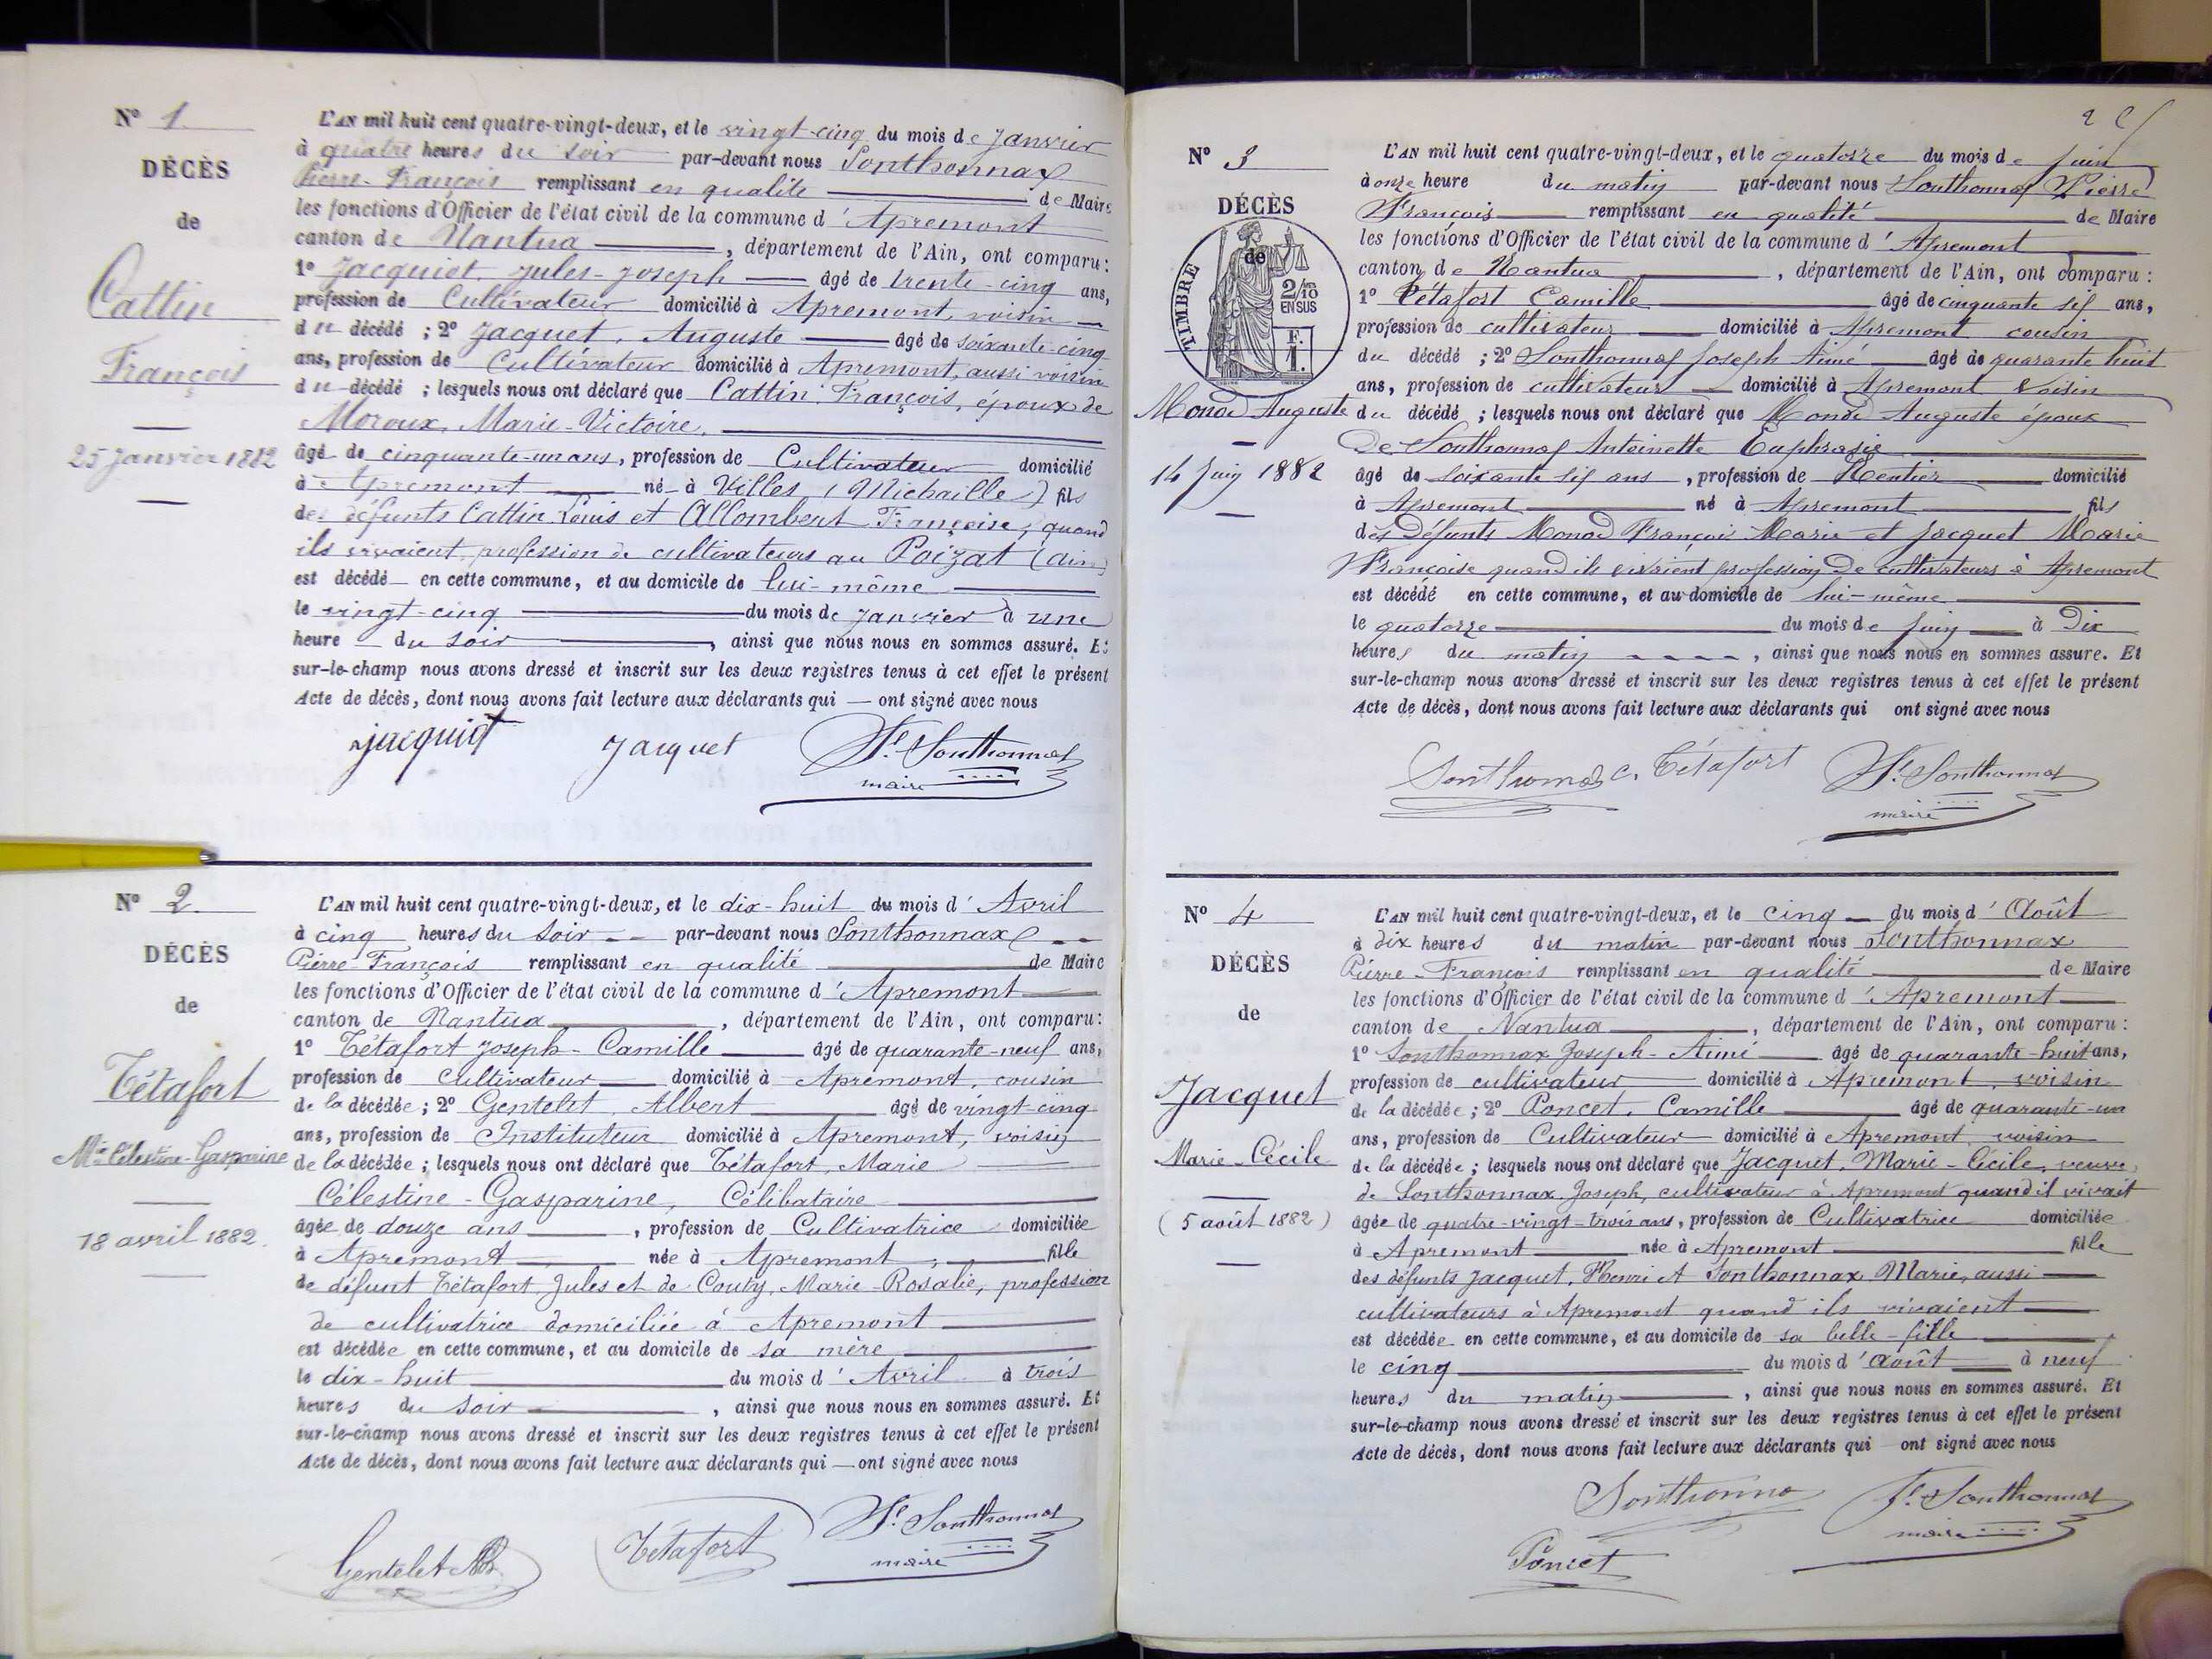 N° 1
DÉCÈS
de
Cattin
François
25 Janvier 1882
L'AN mil huit cent quatre-vingt-deux, et le vingt-cinq du mois de Janvier
à quatre heures du soir par-devant nous Sonthonnax
Pierre-François remplissant en qualité de Maire
les fonctions d'Officier de l'état civil de la commune d'Apremont
canton de Nantua, département de l'Ain, ont comparu :
1° Jacquiot, Jules-Joseph âgé de trente-cinq ans,
profession de Cultivateur domicilié à Apremont, voisin
du décédé ; 2° Jacquet, Auguste âgé de soixante-cinq
ans, profession de Cultivateur domicilié à Apremont, aussi voisin
du décédé ; lesquels nous ont déclaré que Cattin, François, époux de
Moroux, Marie-Victoire,
âgé de cinquante-un ans, profession de Cultivateur domicilié
à Apremont né à Villes (Michaille) fils
des défunts Cattin Louis et Allombert Françoise, quand
ils vivaient, profession de cultivateurs au Poizat (Ain)
est décédé en cette commune, et au domicile de lui-même
le vingt-cinq du mois de Janvier à une
heure du soir, ainsi que nous nous en sommes assuré. Et
sur-le-champ nous avons dressé et inscrit sur les deux registres tenus à cet effet le présent
Acte de décès, dont nous avons fait lecture aux déclarants qui — ont signé avec nous
Jacquiot Jacquet Sonthonnax
maire
N° 2
DÉCÈS
de
Tétafort
Mie Célestine-Gasparine
18 avril 1882.
L'AN mil huit cent quatre-vingt-deux, et le dix-huit du mois d'Avril
à cinq heures du soir par-devant nous Sonthonnax
Pierre-François remplissant en qualité de Maire
les fonctions d'Officier de l'état civil de la commune d'Apremont
canton de Nantua, département de l'Ain, ont comparu :
1° Tétafort Joseph-Camille âgé de quarante-neuf ans,
profession de Cultivateur domicilié à Apremont, cousin
de la décédée ; 2° Gentelet, Albert âgé de vingt-cinq
ans, profession de Instituteur domicilié à Apremont, voisin
de la décédée ; lesquels nous ont déclaré que Tétafort, Marie
Célestine-Gasparine, Célibataire
âgée de douze ans, profession de Cultivatrice domiciliée
à Apremont née à Apremont, fille
de défunt Tétafort, Jules et de Couty, Marie-Rosalie, profession
de cultivatrice domiciliée à Apremont
est décédée en cette commune, et au domicile de sa mère
le dix-huit du mois d'Avril à trois
heures du soir, ainsi que nous nous en sommes assuré. Et
sur-le-champ nous avons dressé et inscrit sur les deux registres tenus à cet effet le présent
Acte de décès, dont nous avons fait lecture aux déclarants qui — ont signé avec nous
Gentelet Tétafort Sonthonnax
maire
N° 3
DÉCÈS
de
TIMBRE
2/10
EN SUS
F.
1.
Monod Auguste
14 Juin 1882
L'AN mil huit cent quatre-vingt-deux, et le quatorze du mois de Juin
à onze heure du matin par-devant nous Sonthonnax Pierre
François remplissant en qualité de Maire
les fonctions d'Officier de l'état civil de la commune d'Apremont
canton de Nantua, département de l'Ain, ont comparu :
1° Tétafort Camille âgé de cinquante six ans,
profession de cultivateur domicilié à Apremont cousin
du décédé ; 2° Sonthonnax Joseph Aimé âgé de quarante huit
ans, profession de cultivateur domicilié à Apremont voisin
du décédé ; lesquels nous ont déclaré que Monod Auguste époux
De Sonthonnax Antoinette Euphrasie
âgé de soixante six ans, profession de Rentier domicilié
à Apremont né à Apremont fils
des Défunts Monod François Marie et Jacquet Marie
Françoise quand ils vivaient profession De cultivateurs à Apremont
est décédé en cette commune, et au domicile de lui-même
le quatorze du mois de Juin à Dix
heures du matin, ainsi que nous nous en sommes assuré. Et
sur-le-champ nous avons dressé et inscrit sur les deux registres tenus à cet effet le présent
Acte de décès, dont nous avons fait lecture aux déclarants qui ont signé avec nous
Sonthonnax C. Tétafort Sonthonnax
maire
N° 4
DÉCÈS
de
Jacquet
Marie-Cécile
(5 août 1882)
L'AN mil huit cent quatre-vingt-deux, et le cinq du mois d'Août
à dix heures du matin par-devant nous Sonthonnax
Pierre-François remplissant en qualité de Maire
les fonctions d'Officier de l'état civil de la commune d'Apremont
canton de Nantua, département de l'Ain, ont comparu :
1° Sonthonnax Joseph-Aimé âgé de quarante-huit ans,
profession de cultivateur domicilié à Apremont, voisin
de la décédée ; 2° Poncet, Camille âgé de quarante-un
ans, profession de Cultivateur domicilié à Apremont voisin
de la décédée ; lesquels nous ont déclaré que Jacquet, Marie-Cécile, veuve
de Sonthonnax Joseph, cultivateur à Apremont quand il vivait
âgée de quatre-vingt-trois ans, profession de Cultivatrice domiciliée
à Apremont née à Apremont fille
des défunts Jacquet, Henri et Sonthonnax Marie, aussi
cultivateurs à Apremont quand ils vivaient
est décédée en cette commune, et au domicile de sa belle-fille
le cinq du mois d'août à neuf
heures du matin, ainsi que nous nous en sommes assuré. Et
sur-le-champ nous avons dressé et inscrit sur les deux registres tenus à cet effet le présent
Acte de décès, dont nous avons fait lecture aux déclarants qui ont signé avec nous
Sonthonna Sonthonnax
maire
Poncet